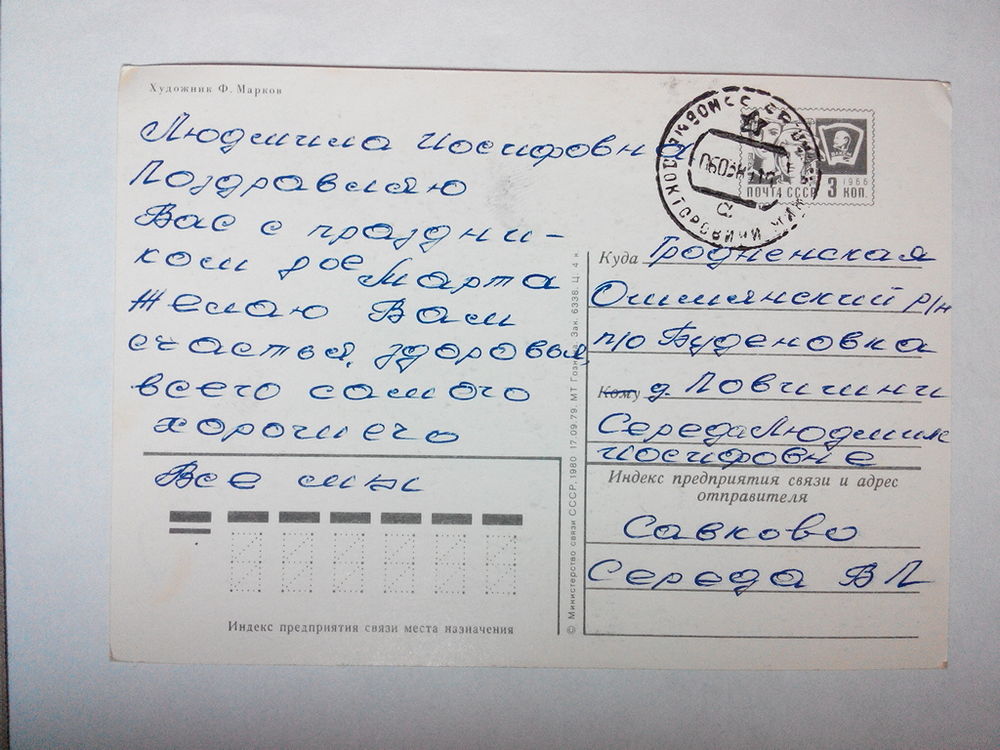 Художник Ф. Марков
Людмила Иосифовна
Поздравляю
Вас с праздни-
ком 8ое Марта
Желаю Вам
счастья, здоровья,
всего самого
хорошего
Все мы
Индекс предприятия связи места назначения
© Министерство связи СССР, 1980 17.09.79. МТ Гознака Зак. 6338. Ц. 4 к.
ПОЧТА СССР 3 КОП.
1966
Куда Гродненская
Ошмянский р/н
п/о Буденовка
Кому д. Ловчини
Середа Людмиле
Иосифовне
Индекс предприятия связи и адрес
отправителя
Савково
Середа ВЛ